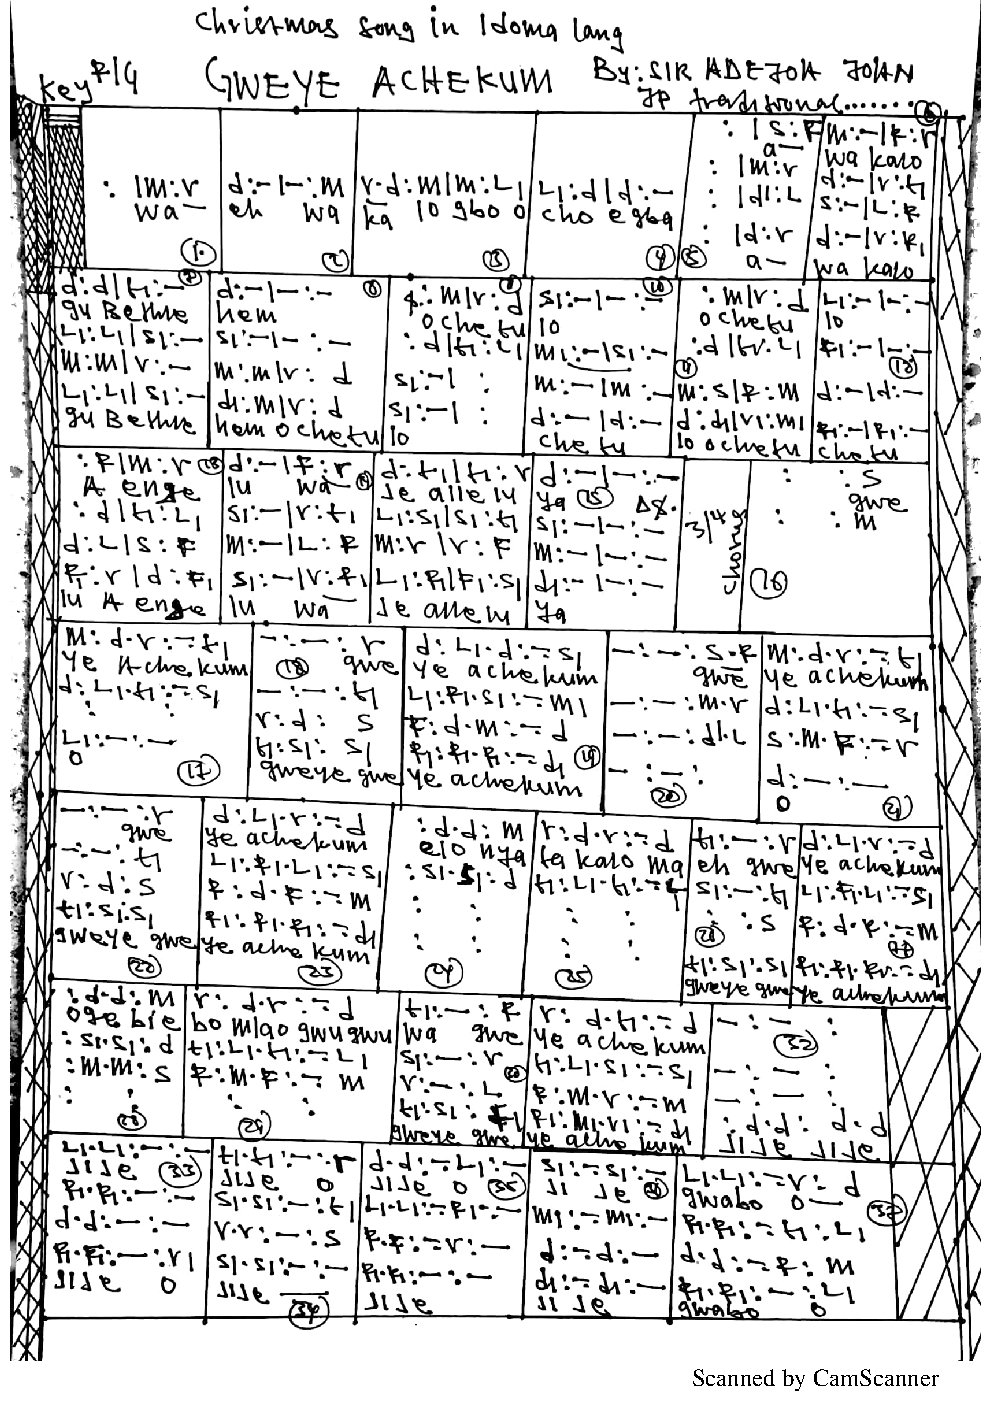 Christmas song in Idoma lang
Key F/G GWEYE ACHEKUM By: SIR ADEJOH JOHN
JP traditional.......
: |m:r
wa—
1.
d:-|-:m
eh wa
2
r.d:m|m:L|
ka lo gbo o
3
L|:d|d:—
cho egba
4
: |s:f
a—
: |m:r
: |d|:L
: |d:r
a—
5
m:—|f:r
wa kalo
d:—|r:t|
s:—|L:f
d:—|r:f|
wa kalo
6
d:d|t|:—
gu Bethle
L|:L||s|:—
m:m|r:—
L|:L||s|:—
gu Bethle
7
d:—|—:—
hem
s|:—|—:—
m:m|r:d
d|:m|r:d
hem o chetu
8
: m|r:d
o chetu
: d|t|:L|
s|:—| :
s|:—| :
lo
9
s|:—|—:—
lo
m|:—|s|:—
m:—|m:—
d:—|d:—
chetu
10
: m|r:d
o chetu
: d|tr.L|
m:s|f:m
d:d||r|:m|
lo o chetu
11
L|:—|—:—
lo
f|:—|—:—
d:—|d:—
f|:—|f|:—
chetu
12
: f|m:r
A enge
: d|t|:L|
d:L|s:f
f|:r|d:f|
lu A enge
13
d:—|f:r
lu wa
s|:—|r:t|
m:—|L:f
s|:—|r:f|
lu wa
14
d:t||t|:r
Je allelu
L|:s||s|:t|
m:r|r:f
L|:f||f|:s|
Je allelu
d:—|—:—
ya 15 DS.
s|:—|—:—
m:—|—:—
d|:—|—:—
ya
3/4 chorus
: : s
gwe
: : m
16
m:d.r:—t|
ye Achekum
d:L|.t|:—s|
: :
L|:—:—
o
17
—:—:r
18 gwe
—:—:t|
r:d:s
t|:s|:s|
gweye gwe
d:L|.d:—s|
ye achekum
L|:f|.s|:—m|
f:d.m:—d
f|:f|.f|:—d|
ye achekum
19
—:—:s.f
gwe
—:—:m.r
—:—:d|.L
—:—:
20
m:d.r:—t|
ye achekum
d:L|.t|:—s|
s:m.f:—r
d:—:—
o
21
—:—:r
gwe
—:—:t|
r:d:s
t|:s|:s|
gweye gwe
22
d:L|.r:—d
ye achekum
L|:f|.L|:—s|
f:d.f:—m
f|:f|.f|:—d|
ye ache kum
23
:d.d:m
elo nya
:s|.s|:d
: :
: :
24
r:d.r:—d
ta kalo ma
t|:L|.t|:—L|
: :
: :
25
t|:—:r
eh gwe
s|:—:t|
: :s
t|:s|:s|
gweye gwe
26
d:L|.r:—d
ye achekum
L|:f|.L|:—s|
f:d.f:—m
f|:f|.f|:—d|
ye achekum
27
:d.d:m
oge bie
:s|.s|:d
:m.m:s
: :
28
r:d.r:—d
bo mlao gwugwu
t|:L|.t|:—L|
f:m.f:—m
: :
29
t|:—:f
wa gwe
s|:—:r
r:—:L
t|:s|:f|
gweye gwe
30
r:d.t|:—d
ye achekum
t|:L|.s|:—s|
f:m.r:—m
f|:m|.r|:—d|
ye ache kum
—:— :
32
—:— :
—:— :
:d.d:d.d
JIJE JIJE
L|.L|:—:—
JIJE 33
f|.f|:—:—
d.d:—:—
f|.f|:—:r|
JIJE o
t|.t|:—:r
JIJE o
s|.s|:—:t|
r.r:—:s
s|.s|:—:—
JIJE
34
d.d:—L|:—
JIJE o 35
L|.L|:—f|:—
f.f:—r:—
f|.f|:—:—
JIJE
s|:—s|:—
JI JE 36
m|:—m|:—
d:—d:—
d|:—d|:—
JI JE
L|.L|:—r:d
gwabo o—
f|.f|:—t|:L|
37
d.d:—f:m
f|.f|:—:L|
gwabo o
Scanned by CamScanner